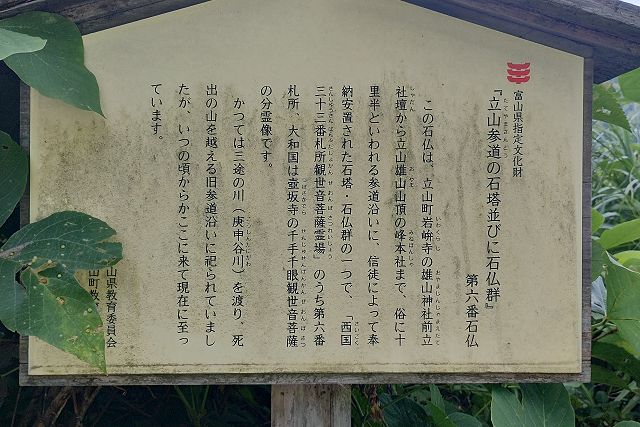 富山県指定文化財
『立山参道の石塔並びに石仏群』
たてやまさんどう
第六番石仏
この石仏は、立山町岩峅寺の雄山神社前立
社壇から立山雄山山頂の峰本社まで、俗に十
里半といわれる参道沿いに、信徒によって奉
納安置された石塔・石仏群の一つで、「西国
三十三番札所観世音菩薩霊場』のうち第六番
札所、大和国は壺坂寺の千手千眼観世音菩薩
の分霊像です。
かつては三途の川（庚申谷川）を渡り、死
出の山を越える旧参道沿いに祀られていまし
たが、いつの頃からかここに来て現在に至っ
ています。
山県教育委員会
山町教